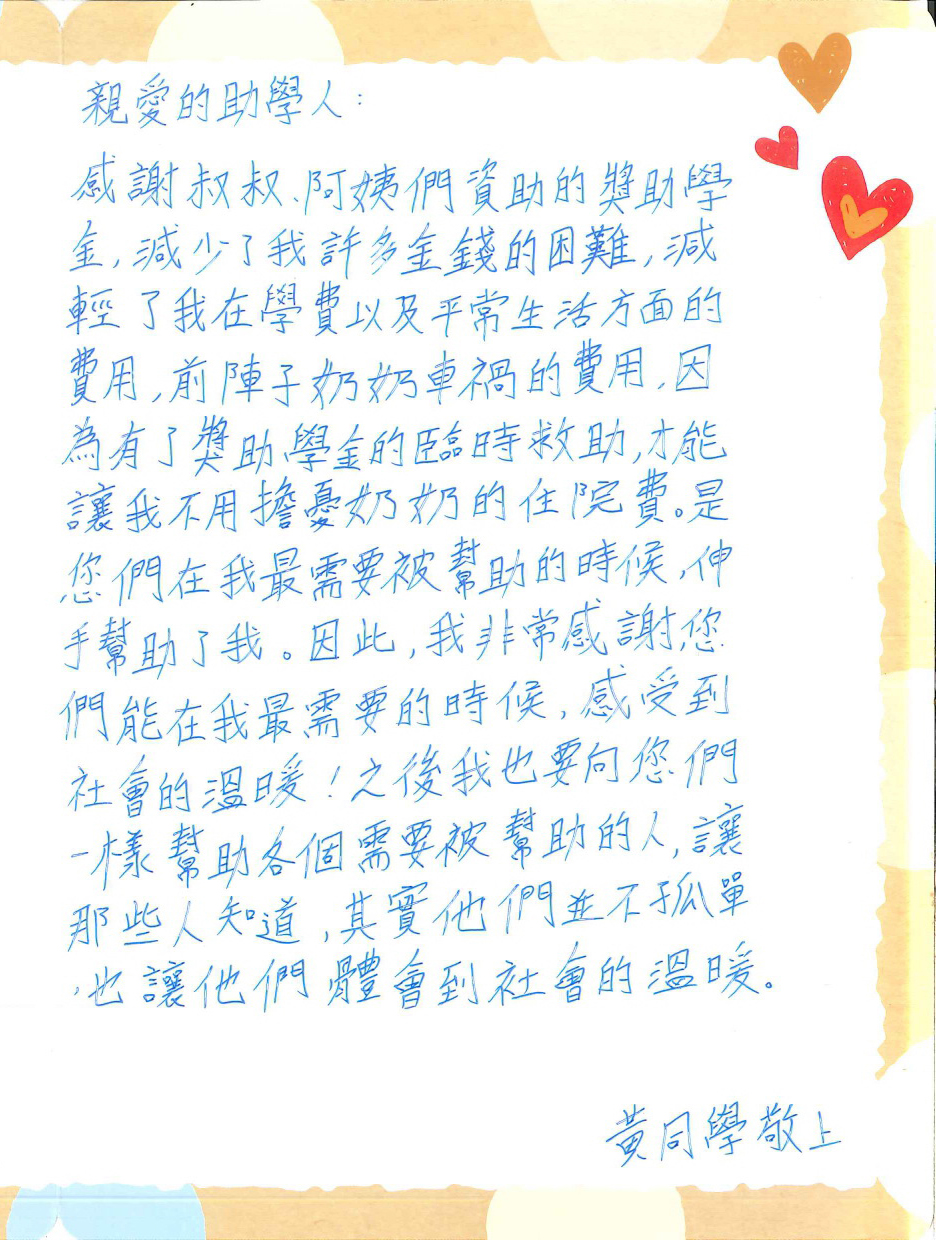 親愛的助學人：
感謝叔叔、阿姨們資助的獎助學
金，減少了我許多金錢的困難，減
輕了我在學費以及平常生活方面的
費用，前陣子奶奶車禍的費用，因
為有了獎助學金的臨時救助，才能
讓我不用擔憂奶奶的住院費。是
您們在我最需要被幫助的時候，伸
手幫助了我。因此，我非常感謝您
們能在我最需要的時候，感受到
社會的溫暖！之後我也要向您們
一樣幫助各個需要被幫助的人，讓
那些人知道，其實他們並不孤單
，也讓他們體會到社會的溫暖。
黃同學敬上